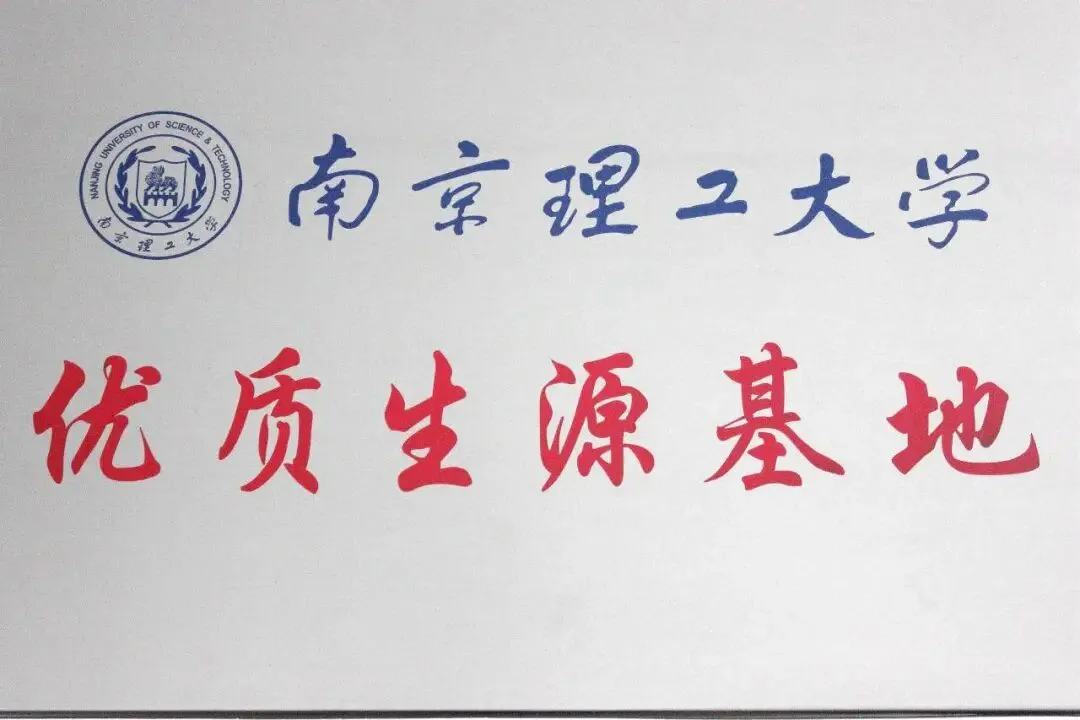 NANJING UNIVERSITY OF SCIENCE & TECHNOLOGY
南京理工大学
南京理工大学
优质生源基地